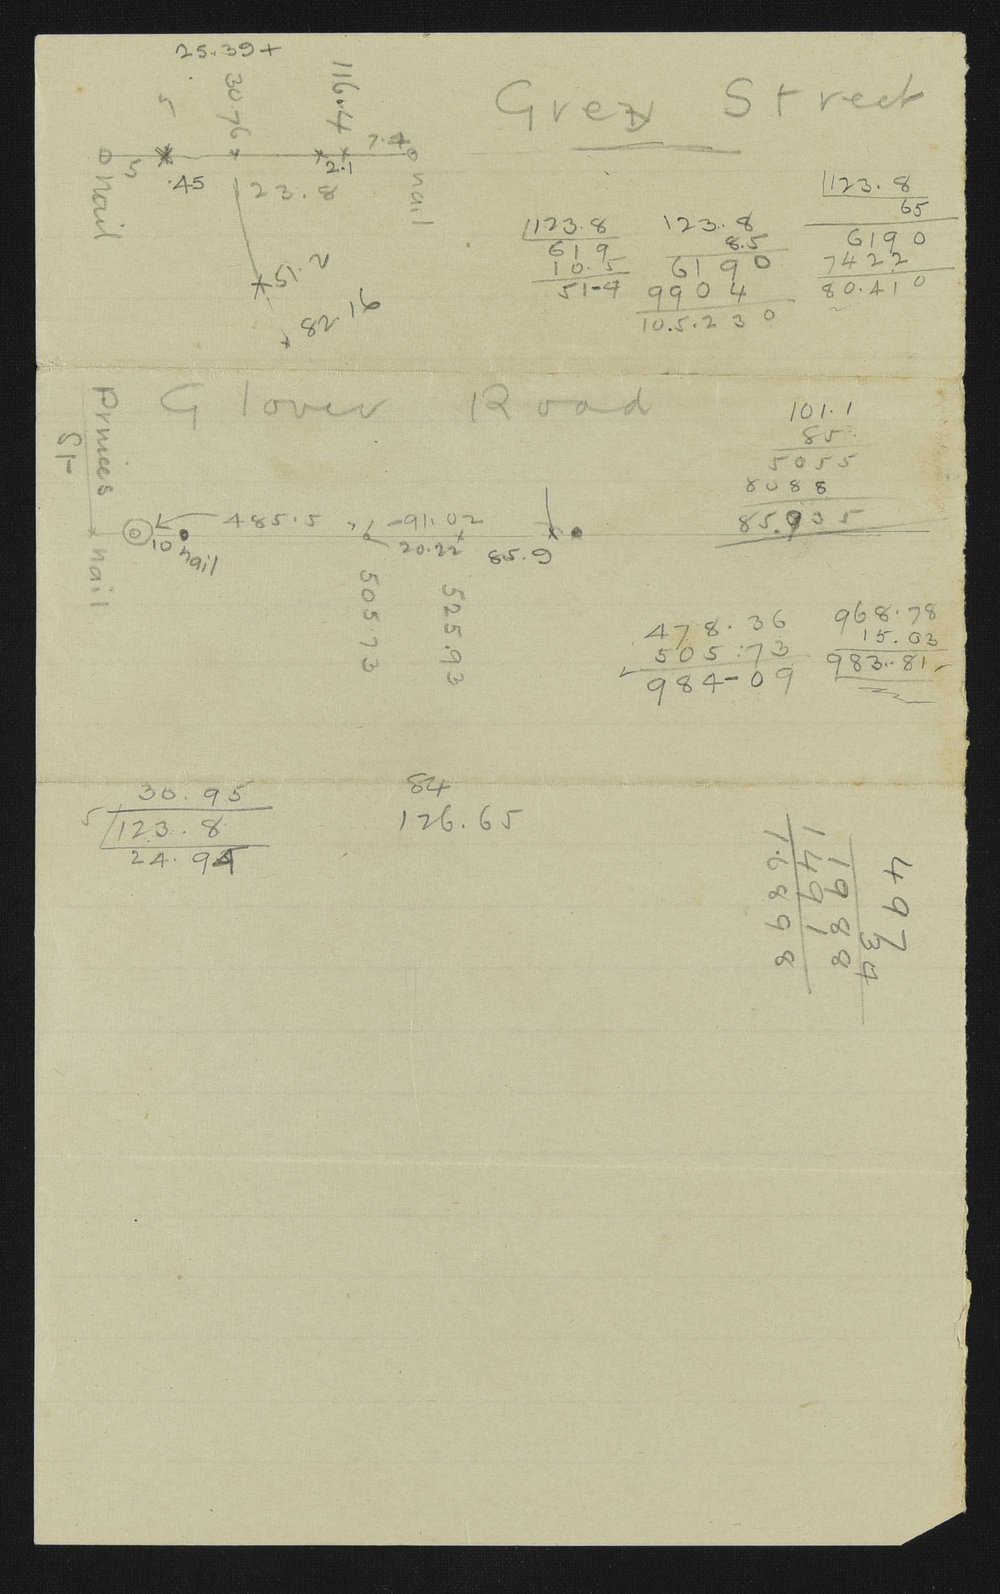 25.39+
Grey Street
5
30.76
116.4
7.4
nail
5
.45
2.1
123.8
nail
51.2
82.16
123.8
619
10.5
51-4
123.8
8.5
6190
9904
10.5.230
123.8
65
6190
7422
80.410
Glover Road
Princes
St
nail
10 nail
485.5
-91.02
20.22
85.9
505.73
525.93
101.1
85
5055
8088
85.935
478.36
505.73
984-09
968.78
15.03
983.81
30.95
5 123.8
24.95
84
126.65
497
34
1988
1491
1.6898